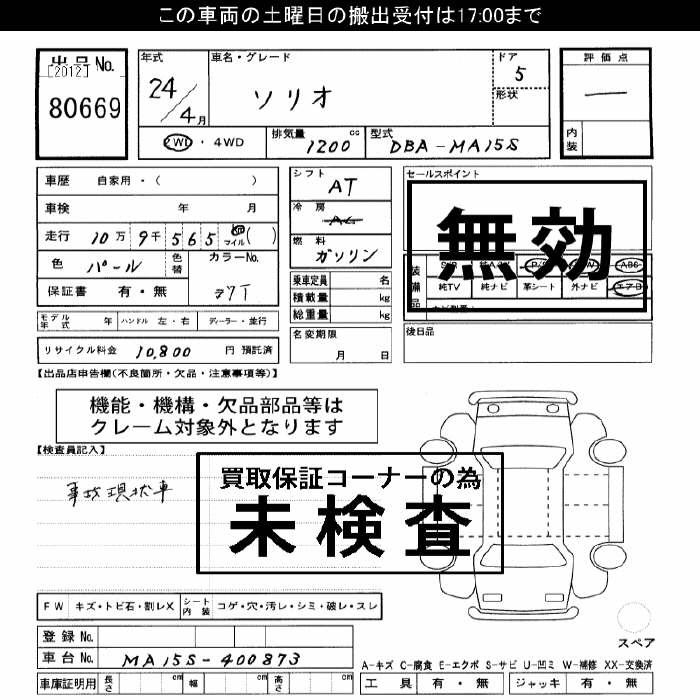 この車両の土曜日の搬出受付は17:00まで
出品No. [2012] 80669
年式 24/4月
車名・グレード ソリオ
ドア 5
形状
評価点 —
内装
2WD・4WD 排気量 1200cc 型式 DBA-MA15S
車歴 自家用・( )
車検 年 月
走行 10万9千565 マイル( )
色 パール 色替 カラーNo. Z7T
保証書 有・無
シフト AT
冷房 AC
燃料 ガソリン
乗車定員 名
積載量 kg
総重量 kg
名変期限
月 日
セールスポイント
無効
装備品 P/S A/B
純TV 純ナビ 革シート 外ナビ エアロ
後日品
モデル年式 年 ハンドル 左・右 ディーラー・並行
リサイクル料金 10,800 円 預託済
【出品店申告欄(不良箇所・欠品・注意事項等)】
機能・機構・欠品部品等は
クレーム対象外となります
【検査員記入】
事故現状車
買取保証コーナーの為
未検査
FW キズ・トビ石・割レX シート内装 コゲ・穴・汚レ・シミ・破レ・スレ
登録No.
車台No. MA15S-400873
車庫証明用 長さ cm 幅 cm 高さ cm
スペア
A-キズ C-腐食 E-エクボ S-サビ U-凹ミ W-補修 XX-交換済
工具 有・無 ジャッキ 有・無